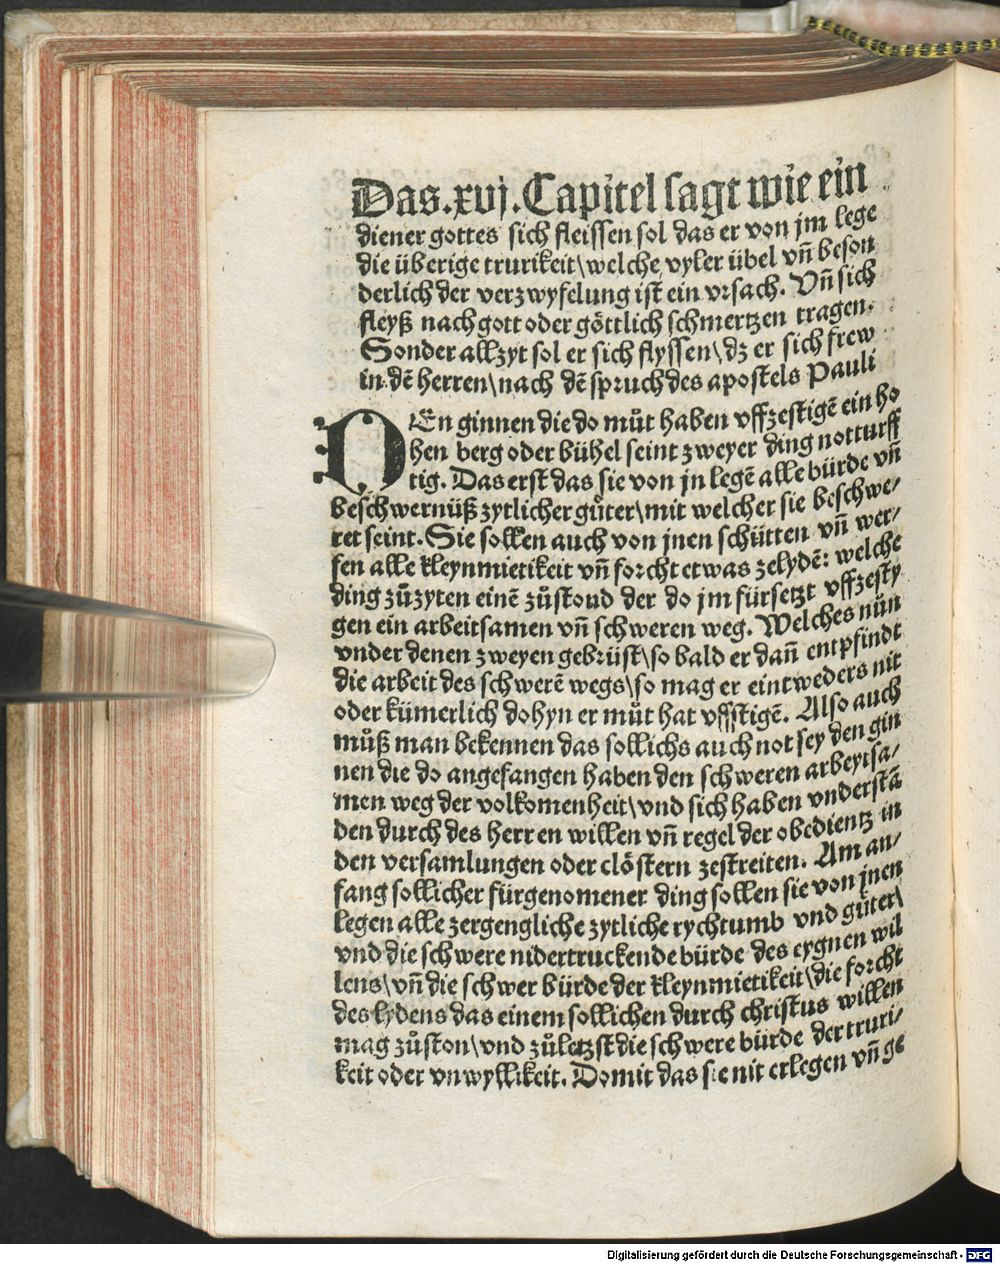 Das .xvj. Capitel sagt wie ein
diener gottes sich fleissen sol das er von jm lege
die überige trurikeit\welche vyler übel vn̄ beson
derlich der verzwyfelung ist ein vrsach. Vn̄ sich
fleyß nach gott oder göttlich schmertzen tragen.
Sonder allzyt sol er sich flyssen\dz er sich frew
in dē herren\nach dē spruch des apostels Pauli
DEn ginnen die do můt haben vffzestigē ein ho
hen berg oder bühel seint zweyer ding notturff
tig. Das erst das sie von jn legē alle bürde vn̄
beschwernüß zytlicher gůter\mit welcher sie beschwe/
ret seint. Sie sollen auch von jnen schütten vn̄ wer/
fen alle kleynmietikeit vn̄ forcht etwas zelydē: welche
ding zů zyten einē zůstond der do jm fürsetzt vffzesty
gen ein arbeitsamen vn̄ schweren weg. Welches nůn
vnder denen zweyen gebrüst\so bald er dan̄ entpfindt
die arbeit des schwerē wegs\so mag er eintweders nit
oder kümerlich dohyn er můt hat vffstigē. Also auch
můß man bekennen das sollichs auch not sey den gin
nen die do angefangen haben den schweren arbeytsa/
men weg der volkomenheit\vnd sich haben vnderstā
den durch des herren willen vn̄ regel der obedientz in
den versamlungen oder clöstern zestreiten. Am an/
fang sollicher fürgenomener ding sollen sie von jnen
legen alle zergengliche zytliche rychtumb vnd gůter\
vnd die schwere nidertruckende bürde des eygnen wil
lens\vn̄ die schwer bürde der kleynmietikeit\die forcht
des lydens das einem sollichen durch christus willen
mag zůston\vnd zůletzst die schwere bürde der truri/
keit oder vnwyllikeit. Domit das sie nit erlegen vn̄ ge
Digitalisierung gefördert durch die Deutsche Forschungsgemeinschaft - DFG